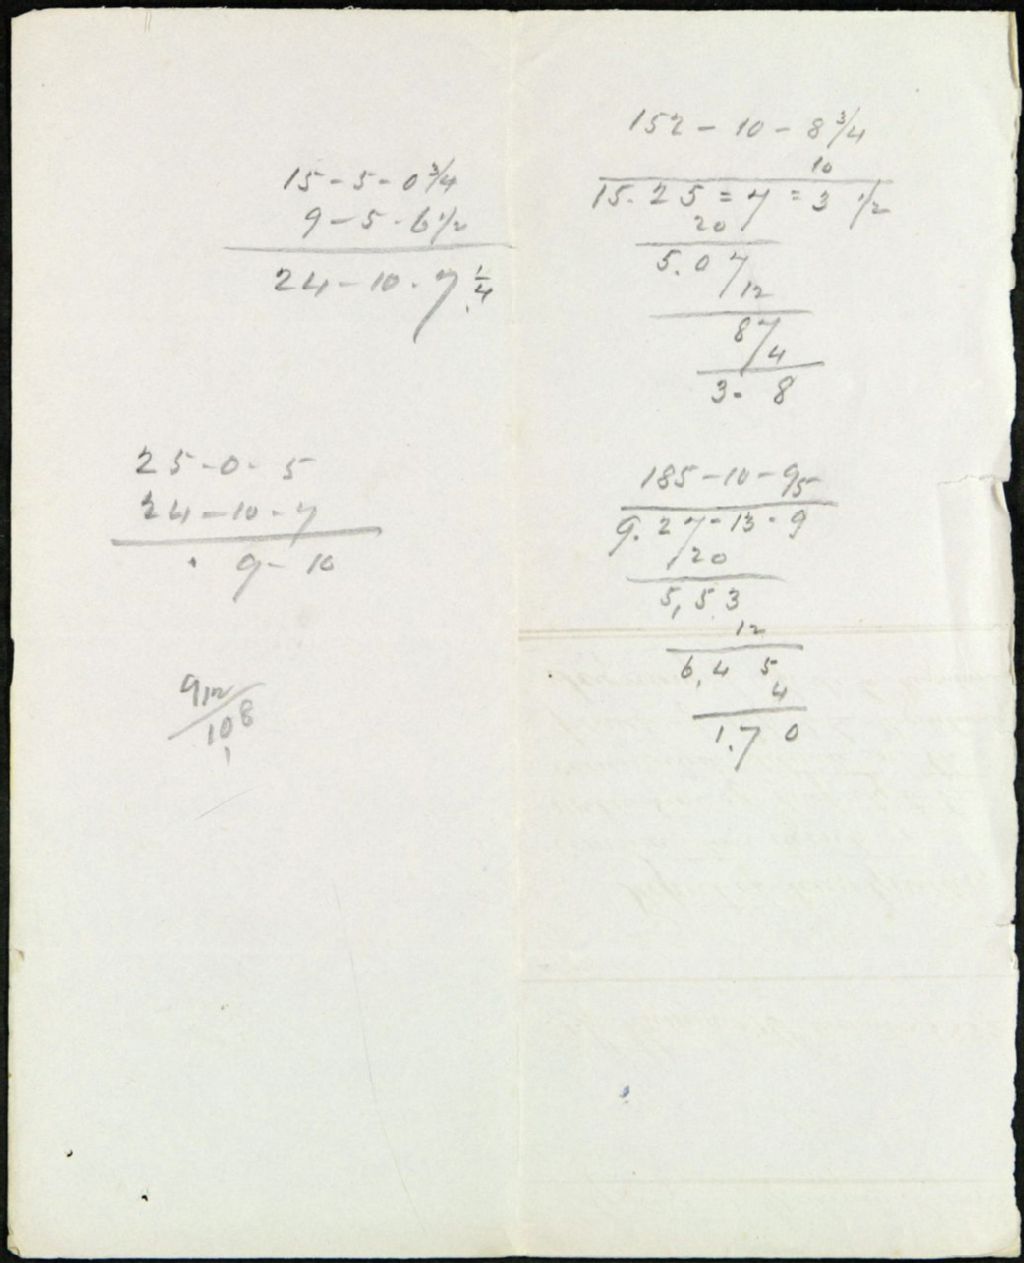 15 - 5 - 0 3/4
9 - 5 - 6 1/2
24 - 10 - 7 1/4
25 - 0 - 5
24 - 10 - 7
9 - 10
9/12
108
1
152 - 10 - 8 3/4
10
15. 25 = 7 = 3 1/2
20
5. 07
12
87
4
3. 8
185 - 10 - 9
5
9. 27 - 13 - 9
20
5, 53
12
6, 4 5
4
1. 7 0